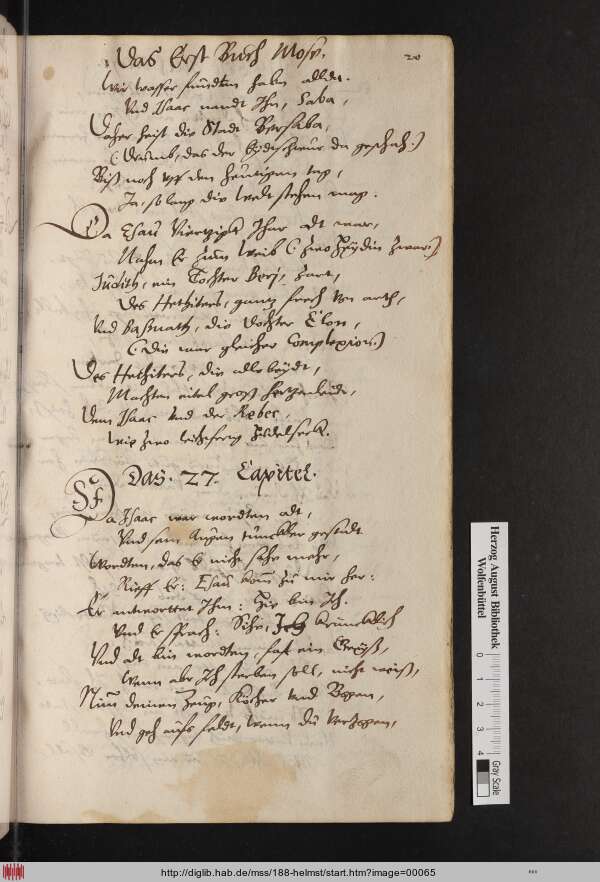 Das Erst Buch Mose.
20
Wir wasser fundten haben alldu.
Vnd Isaac nandt Ihn, Saba,
Daher heist die Stadt Bersaba,
Biß noch vff den heutigen tag,
Ja, so lang die Wedt stehen mag.
Da Esau Viertzigk Ihar alt war,
Nahm Er zum Weib (: zwo Heydin zwar :)
Judith, ein Tochter Berj, zart,
Des Hethiters, gantz frech von arth,
Vnd Basmath, die Dochter Elon,
(: Die war gleicher Complexion :)
Des Hethiters, die alle beydt,
Machten eitel groß hertzenleidt,
Dem Isaac Vnd der Rebec,
Wie zwo leichtfertig
Das. 27. Capitel.
Da Isaac war wordten alt,
Vnd sein Augen tunckler gestalt
Wordten, das Er nicht sahe mehr,
Rieff Er: Esau kom zu mir her:
Er antwortet Ihm: Hie bin Ich.
Vnd Er sprach: Sihe, Ich
Vnd alt bin wordten, fast ein Greyß,
Wenn aber Ich sterben soll, nicht weiß,
Nim deinen Zeug, Kocher Vnd Bogen,
Vnd geh aufs feldt, wenn du
Herzog August Bibliothek
Wolfenbüttel
0 1 2 3 4
Gray Scale
http://diglib.hab.de/mss/188-helmst/start.htm?image=00065